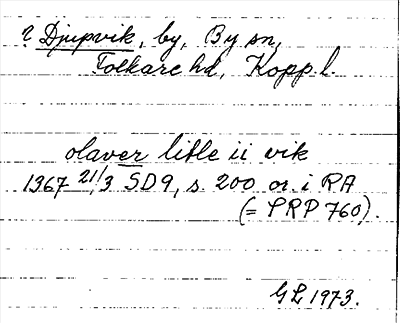 ? Djupvik, by, By sn,
Folkare hd, Kopp l.
olaver litle ii vik
1367 21/3 SD 9, s. 200 or. i RA
(= SRP 760).
GL 1973.